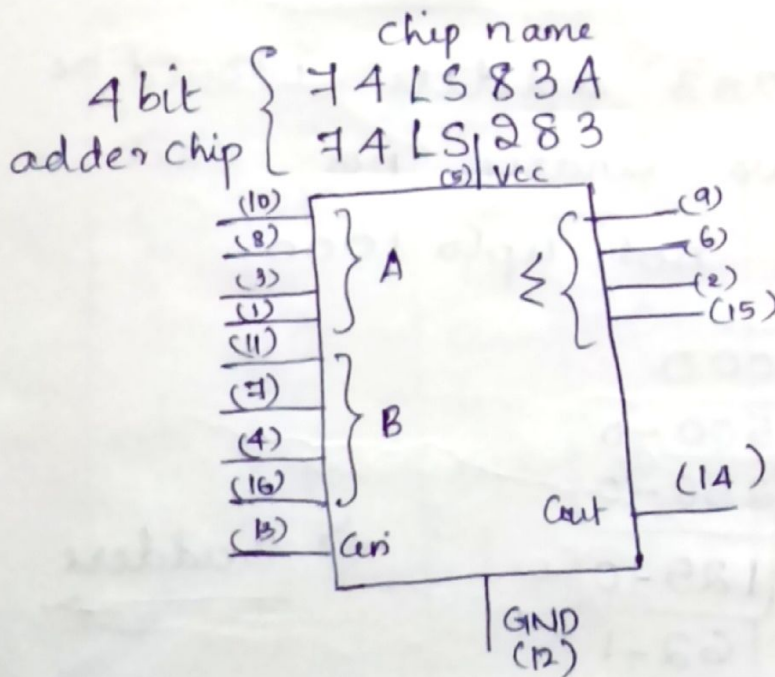 chip name
4 bit
adder chip
74LS83A
74LS283
(5) Vcc
(10)
(8)
(3)
(1)
A
(11)
(7)
(4)
(16)
B
(13) Cin
Σ
(9)
(6)
(2)
(15)
Cout
(14)
GND
(12)